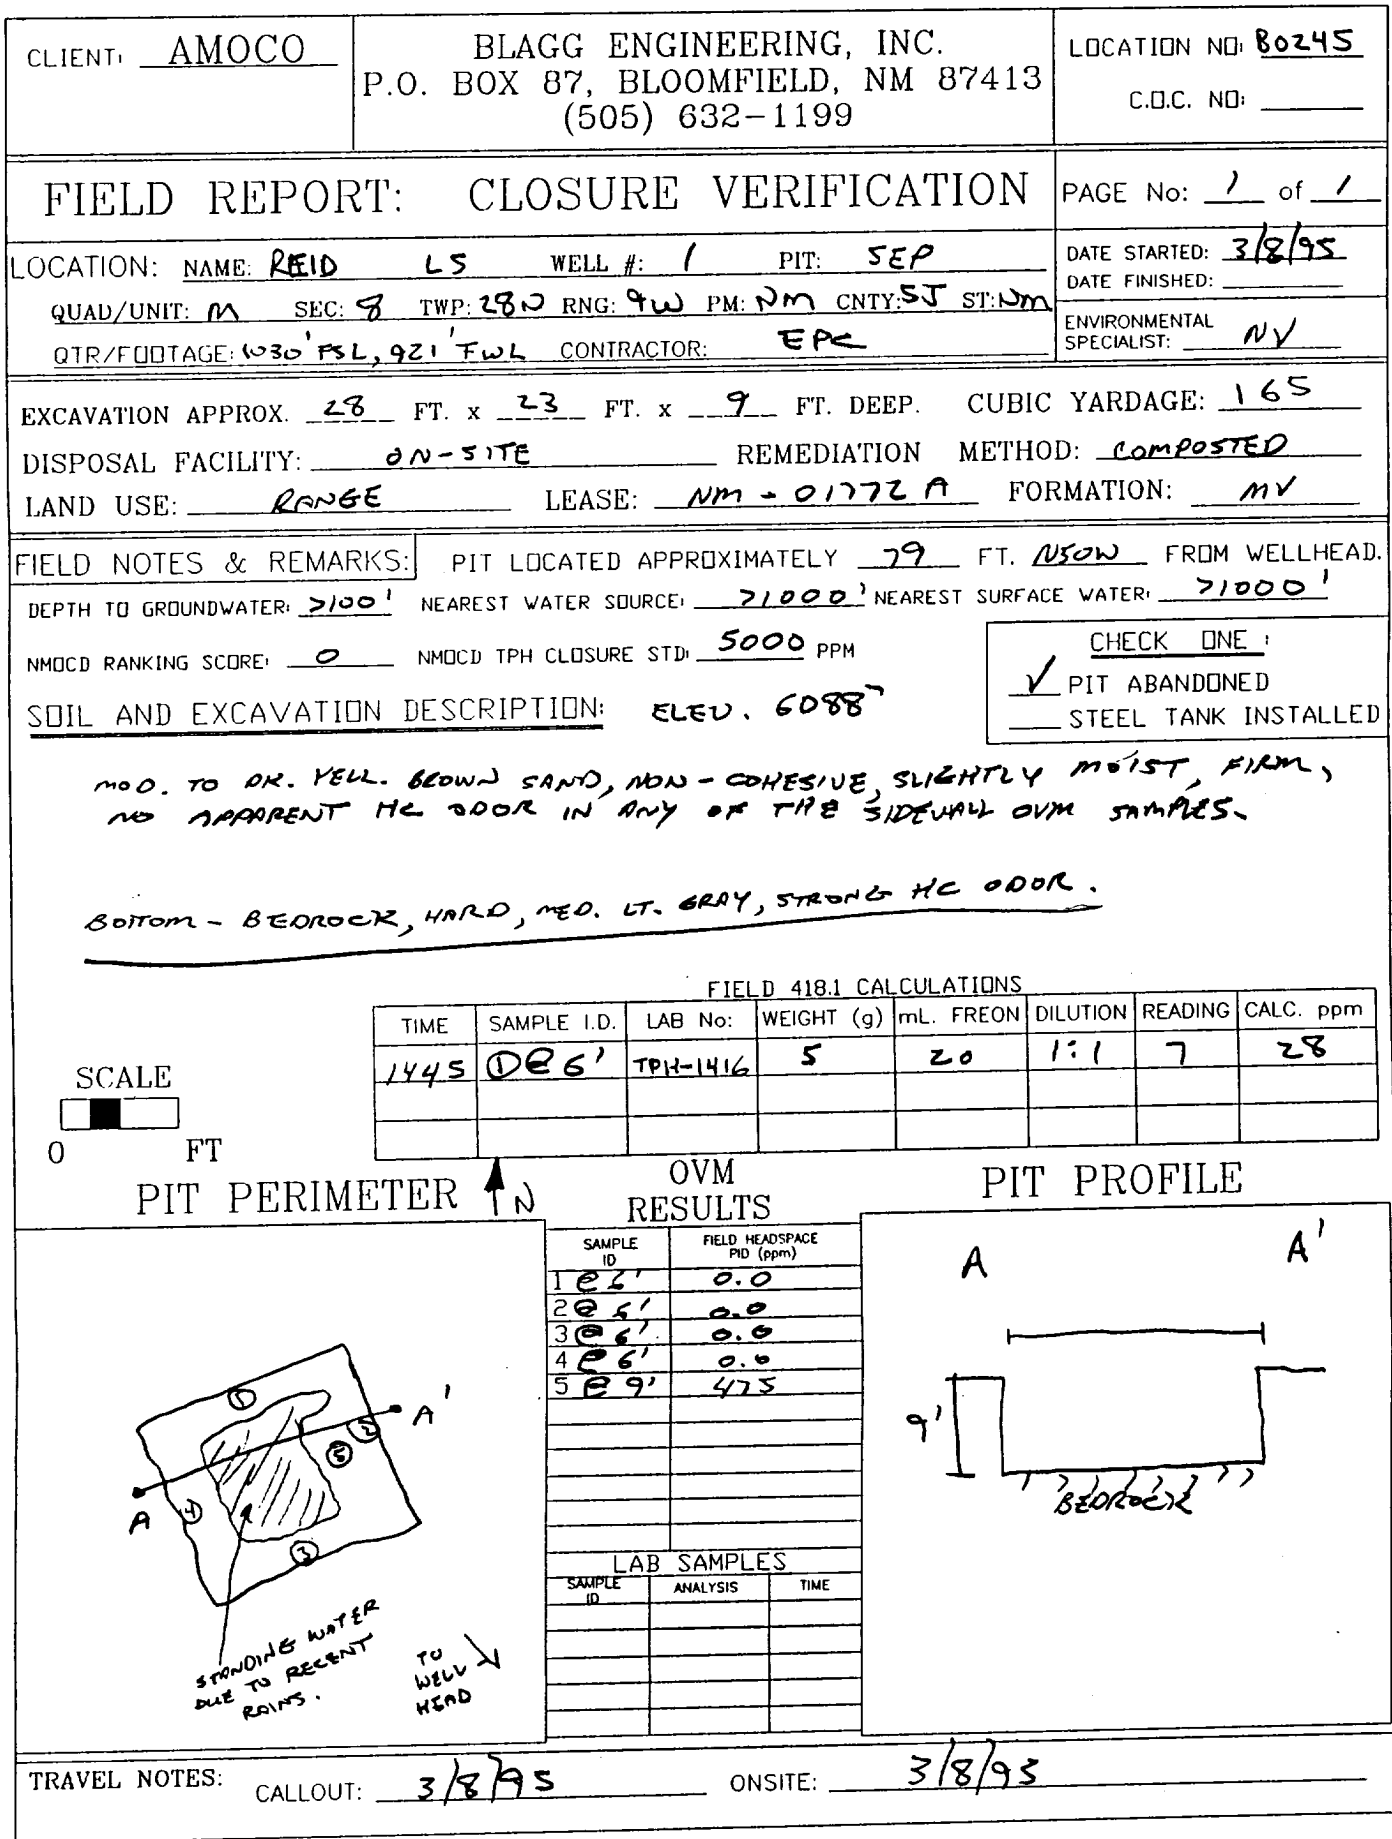 CLIENT: AMOCO
BLAGG ENGINEERING, INC.
P.O. BOX 87, BLOOMFIELD, NM 87413
(505) 632-1199
LOCATION NO: B0245
C.O.C. NO:
FIELD REPORT: CLOSURE VERIFICATION
PAGE No: 1 of 1
LOCATION: NAME: REID LS WELL #: 1 PIT: SEP
QUAD/UNIT: M SEC: 8 TWP: 28N RNG: 9W PM: NM CNTY: SJ ST: NM
QTR/FOOTAGE: 1030' FSL, 921' FWL CONTRACTOR: EPC
DATE STARTED: 3/8/95
DATE FINISHED:
ENVIRONMENTAL
SPECIALIST: NV
EXCAVATION APPROX. 28 FT. x 23 FT. x 9 FT. DEEP. CUBIC YARDAGE: 165
DISPOSAL FACILITY: ON-SITE REMEDIATION METHOD: COMPOSTED
LAND USE: RANGE LEASE: NM-01772A FORMATION: MV
FIELD NOTES & REMARKS: PIT LOCATED APPROXIMATELY 79 FT. N50W FROM WELLHEAD.
DEPTH TO GROUNDWATER: >100' NEAREST WATER SOURCE: >1000' NEAREST SURFACE WATER: >1000'
NMOCD RANKING SCORE: 0 NMOCD TPH CLOSURE STD: 5000 PPM
CHECK ONE:
✓ PIT ABANDONED
STEEL TANK INSTALLED
SOIL AND EXCAVATION DESCRIPTION: ELEV. 6088'
MOD. TO DK. YELL. BROWN SAND, NON-COHESIVE, SLIGHTLY MOIST, FIRM,
NO APPARENT HC ODOR IN ANY OF THE SIDEWALL OVM SAMPLES.
BOTTOM - BEDROCK, HARD, MED. LT. GRAY, STRONG HC ODOR.
FIELD 418.1 CALCULATIONS
TIME SAMPLE I.D. LAB No: WEIGHT (g) mL. FREON DILUTION READING CALC. ppm
1445 ①@6' TPH-1416 5 20 1:1 7 28
SCALE
0 FT
PIT PERIMETER N
OVM
RESULTS
PIT PROFILE
SAMPLE ID FIELD HEADSPACE PID (ppm)
1 @ 6' 0.0
2 @ 6' 0.0
3 @ 6' 0.0
4 @ 6' 0.0
5 @ 9' 475
LAB SAMPLES
SAMPLE ID ANALYSIS TIME
① ② ③ ④ ⑤
A A'
STANDING WATER
DUE TO RECENT
RAINS.
TO
WELL
HEAD
A A'
9'
BEDROCK
TRAVEL NOTES: CALLOUT: 3/8/95 ONSITE: 3/8/95